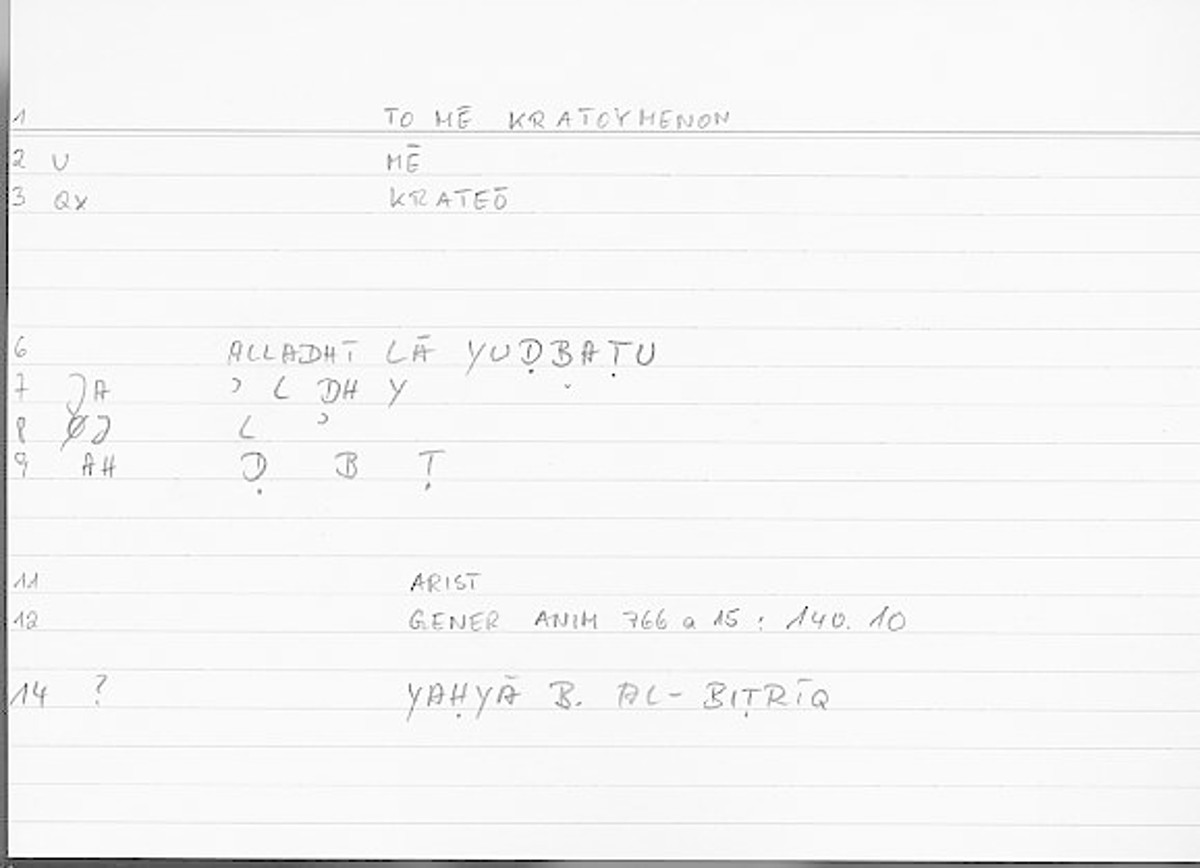 1 TO MĒ KRATOYMENON
2 U MĒ
3 Qx KRATEŌ
6 ALLADHĪ LĀ YUḌBAṬU
7 JA ʾ L DH Y
8 J L ʾ
9 AH Ḍ B Ṭ
11 ARIST
12 GENER ANIM 766 a 15 : 140. 10
14 ? YAḤYĀ B. AL-BIṬRĪQ